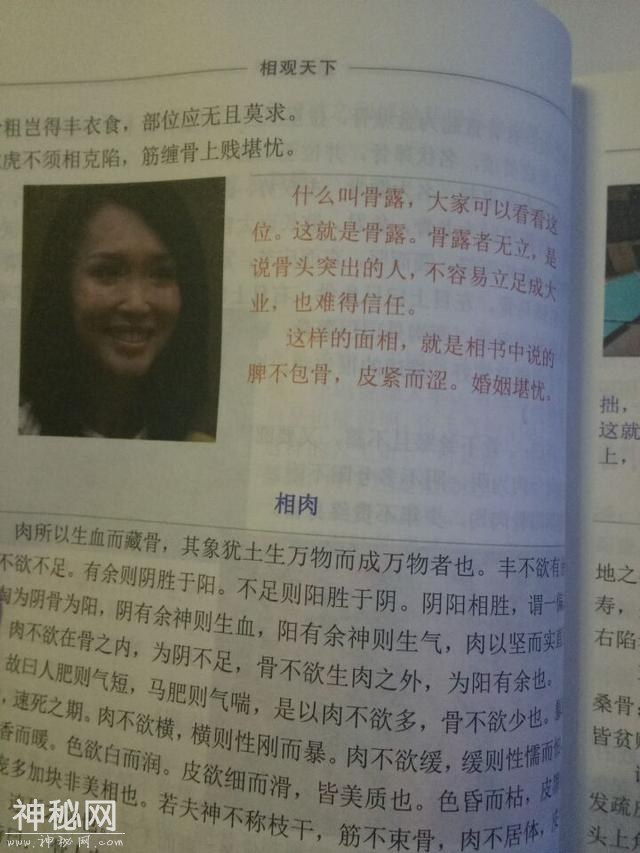 相观天下
粗岂得丰衣食，部位应无且莫求。
虎不须相克陷，筋缠骨上贱堪忧。
什么叫骨露，大家可以看看这
位。这就是骨露。骨露者无立，是
说骨头突出的人，不容易立足成大
业，也难得信任。
这样的面相，就是相书中说的
脾不包骨，皮紧而涩。婚姻堪忧。
相肉
肉所以生血而藏骨，其象犹土生万物而成万物者也。丰不欲有
不欲不足。有余则阴胜于阳。不足则阳胜于阴。阴阳相胜，谓一偏
为阴骨为阳，阴有余神则生血，阳有余神则生气，肉以坚而实直
肉不欲在骨之内，为阴不足，骨不欲生肉之外，为阳有余也。
故曰人肥则气短，马肥则气喘，是以肉不欲多，骨不欲少也。
，速死之期。肉不欲横，横则性刚而暴。肉不欲缓，缓则性懦而
香而暖。色欲白而润。皮欲细而滑，皆美质也。色昏而枯，皮
多加块非美相也。若夫神不称枝干，筋不束骨，肉不居体，
拙，
这就
上，
地之
寿，
右陷
桑骨
皆贫则
发疏
头上
神秘网
www.神秘网.com